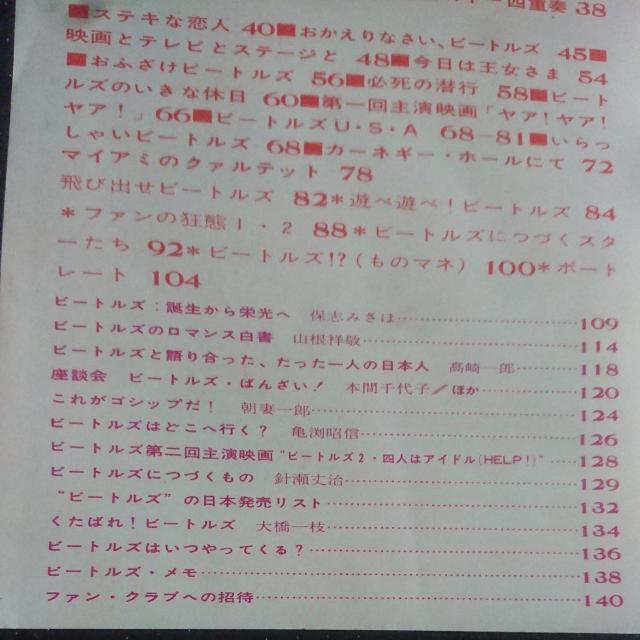 四重奏 38
■ステキな恋人 40■おかえりなさい、ビートルズ 45■
映画とテレビとステージと 48■今日は王女さま 54
■おふざけビートルズ 56■必死の潜行 58■ビート
ルズのいきな休日 60■第一回主演映画「ヤア!ヤア!
ヤア!」66■ビートルズU・S・A 68–81■いらっ
しゃいビートルズ 68■カーネギー・ホールにて 72
マイアミのクァルテット 78
飛び出せビートルズ 82*遊べ遊べ!ビートルズ 84
*ファンの狂態1・2 88*ビートルズにつづくスタ
ーたち 92*ビートルズ!?(ものマネ) 100*ポート
レート 104
ビートルズ:誕生から栄光へ 保志みさは……109
ビートルズのロマンス白書 山根祥敬……114
ビートルズと語り合った、たった一人の日本人 高崎一郎……118
座談会 ビートルズ・ばんざい! 本間千代子/ほか……120
これがゴシップだ! 朝妻一郎……124
ビートルズはどこへ行く? 亀渕昭信……126
ビートルズ第二回主演映画“ビートルズ2・四人はアイドル(HELP!)”……128
ビートルズにつづくもの 針瀬丈治……129
“ビートルズ”の日本発売リスト……132
くたばれ!ビートルズ 大橋一枝……134
ビートルズはいつやってくる?……136
ビートルズ・メモ……138
ファン・クラブへの招待……140